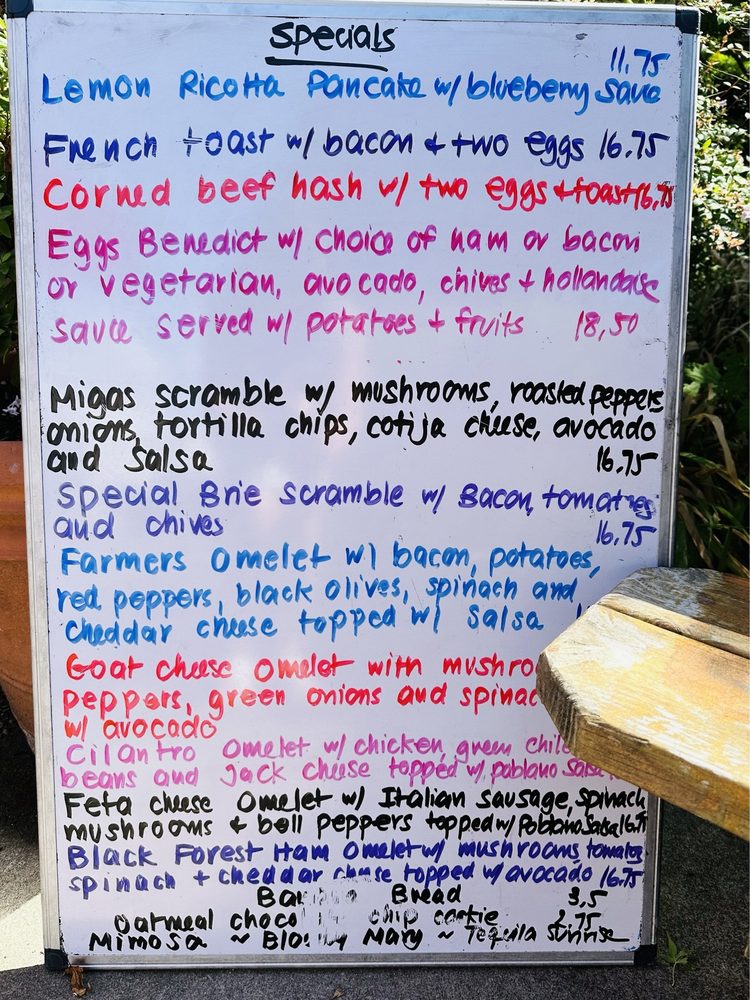 Specials
11.75
Lemon Ricotta Pancake w/ blueberry sauce
French toast w/ bacon & two eggs 16.75
Corned beef hash w/ two eggs + toast 16.75
Eggs Benedict w/ choice of ham or bacon
or vegetarian, avocado, chives + hollandaise
sauce served w/ potatoes + fruits 18,50
Migas scramble w/ mushrooms, roasted peppers
onions, tortilla chips, cotija cheese, avocado
and salsa 16.75
Special Brie Scramble w/ Bacon, tomatoes
and chives 16.75
Farmers Omelet w/ bacon, potatoes,
red peppers, black olives, spinach and
cheddar cheese topped w/ salsa
Goat cheese omelet with
peppers, green onions and
w/ avocado
Cilantro Omelet w/ chicken, green
beans and Jack cheese topped w/ poblano salsa
Feta cheese Omelet w/ Italian sausage, spinach
mushrooms + bell peppers topped w/ Poblano Salsa 16.75
Black Forest Ham Omelet w/ mushrooms, tomatoes
spinach + cheddar cheese topped w/ avocado 16.75
Bread 3,5
oatmeal chip cookie 2.75
Mimosa ~ Mary ~ Tequila Sunrise